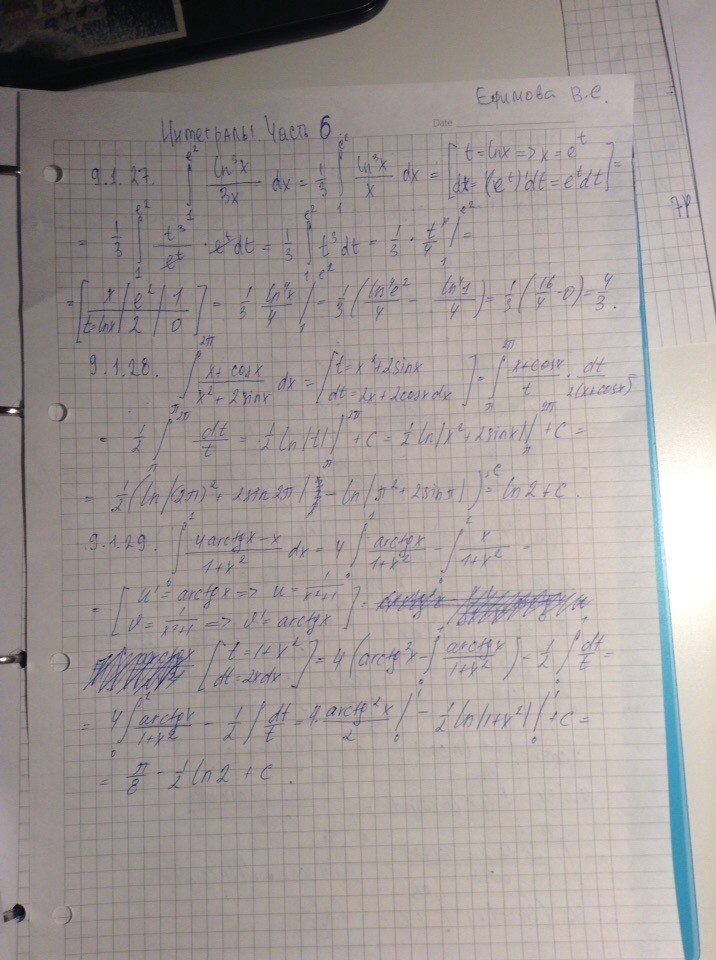 Ефимова В.С.
Интегралы Часть 6
Date
9.1.27. ∫₁^{e²} ln³x/3x dx = 1/3 ∫₁^{e²} ln³x/x dx = [t = lnx => x = e^t; dx = (e^t)'dt = e^t dt] =
= 1/3 ∫₁^{e²} t³/e^t · e^t dt = 1/3 ∫₁^{e²} t³dt = 1/3 · t⁴/4 |₁^{e²} =
= [x | e² | 1; t=lnx | 2 | 0] = 1/3 ln⁴x/4 |₁^{e²} = 1/3 (ln⁴e²/4 - ln⁴1/4) = 1/3 (16/4 - 0) = 4/3.
9.1.28. ∫_π^{2π} x+cosx/x²+2sinx dx = [t = x²+2sinx; dt = 2x+2cosx dx] = ∫_π^{2π} x+cosx/t · dt/2(x+cosx) =
= 1/2 ∫_π^{2π} dt/t = 1/2 ln|t| |_π^{2π} + C = 1/2 ln|x²+2sinx| |_π^{2π} + C =
= 1/2 (ln|(2π)² + 2sin2π| - ln|π²+2sinπ|) + C = ln2 + C.
9.1.29. ∫₀¹ 4arctgx-x/1+x² dx = 4 ∫₀¹ arctgx/1+x² - ∫₀¹ x/1+x² =
= [u' = arctgx => u = 1/x²+1; v = 1/x²+1 => v' = arctgx] =
[t = 1+x²; dt = 2xdx] = 4 (arctg²x - ∫₀¹ arctgx/1+x²) - 1/2 ∫₀¹ dt/t =
= 4 ∫₀¹ arctgx/1+x² - 1/2 ∫ dt/t = 4 arctg²x/2 |₀¹ - 1/2 ln|1+x²| |₀¹ + C =
= π/8 - 1/2 ln2 + C.